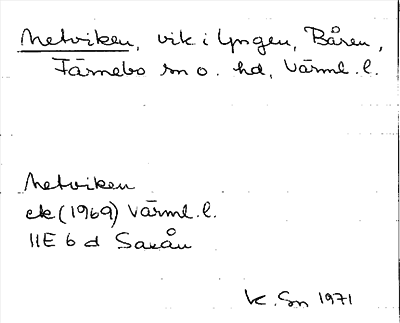 Metviken, vik i Yngen, Båren,
Färnebo sn o. hd, Värml. l.
Metviken
ek (1969) Värml. l.
11E 6 d Saxån
K. Sn 1971